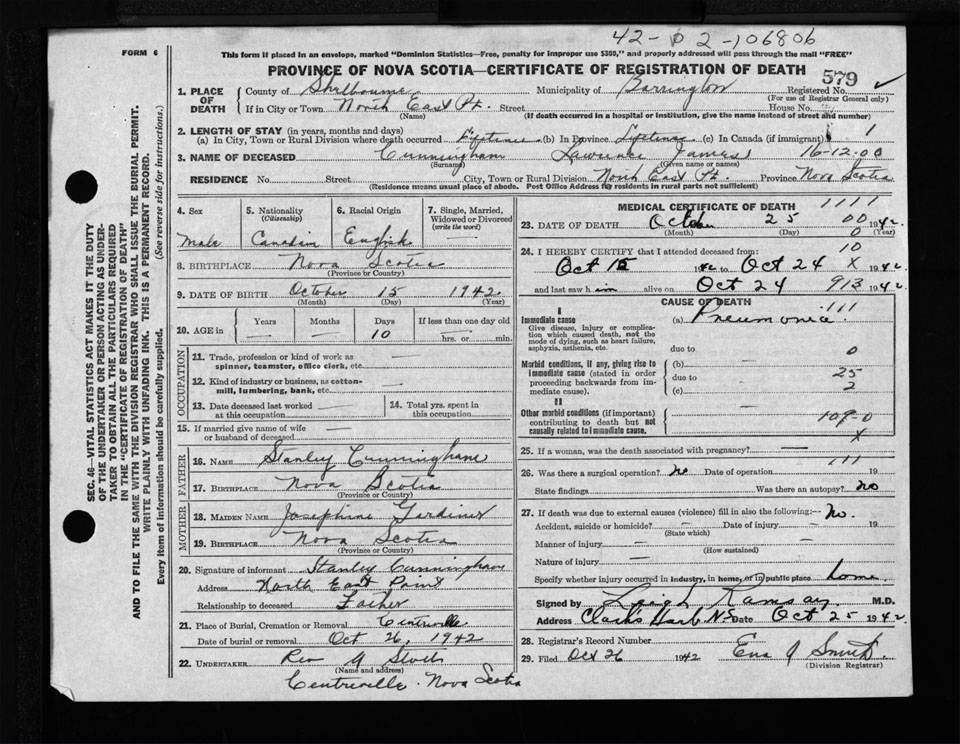 42-02-106806
FORM 6
This form if placed in an envelope, marked "Dominion Statistics—Free, penalty for improper use $300," and properly addressed will pass through the mail "FREE"
PROVINCE OF NOVA SCOTIA—CERTIFICATE OF REGISTRATION OF DEATH 579
1. PLACE OF DEATH County of Shelburne Municipality of Barrington Registered No.
(For use of Registrar General only)
If in City or Town North East Pt. Street House No.
(Name) (If death occurred in a hospital or institution, give the name instead of street and number)
2. LENGTH OF STAY (in years, months and days)
(a) In City, Town or Rural Division where death occurred Lifetime (b) In Province Lifetime (c) In Canada (if immigrant) 1
3. NAME OF DECEASED Cunningham Lawrence James 16-12-00
(Surname) (Given name or names)
RESIDENCE No. Street City, Town or Rural Division North East Pt. Province Nova Scotia
(Residence means usual place of abode. Post Office Address for residents in rural parts not sufficient)
4. Sex 5. Nationality (Citizenship) 6. Racial Origin 7. Single, Married, Widowed or Divorced (write the word)
Male Canadian English —
8. BIRTHPLACE Nova Scotia
(Province or Country)
9. DATE OF BIRTH October 15 1942
(Month) (Day) (Year)
10. AGE in Years Months Days If less than one day old
10 hrs. or min.
OCCUPATION
11. Trade, profession or kind of work as spinner, teamster, office clerk, etc. —
12. Kind of industry or business, as cotton-mill, lumbering, bank, etc. —
13. Date deceased last worked at this occupation — 14. Total yrs. spent in this occupation —
15. If married give name of wife or husband of deceased —
FATHER
16. NAME Stanley Cunningham
17. BIRTHPLACE Nova Scotia
(Province or Country)
MOTHER
18. MAIDEN NAME Josephine Gardiner
19. BIRTHPLACE Nova Scotia
(Province or Country)
20. Signature of informant Stanley Cunningham
Address North East Point
Relationship to deceased Father
21. Place of Burial, Cremation or Removal Centreville
Date of burial or removal Oct 26, 1942
22. UNDERTAKER Rev
(Name and address)
Centreville. Nova Scotia
MEDICAL CERTIFICATE OF DEATH 1111
23. DATE OF DEATH October 25 00 1942
(Month) (Day) 0 (Year)
24. I HEREBY CERTIFY that I attended deceased from: 10
Oct 15 1942 to Oct 24 X 1942
and last saw him alive on Oct 24 913 1942
CAUSE OF DEATH
I
Immediate cause (a) Pneumonia. 111
Give disease, injury or complication which caused death, not the mode of dying, such as heart failure, asphyxia, asthenia, etc.
due to 0
Morbid conditions, if any, giving rise to immediate cause (stated in order proceeding backwards from immediate cause).
(b) — 25
due to
(c) — 2
II
Other morbid conditions (if important) contributing to death but not causally related to immediate cause. — 109-0
X
25. If a woman, was the death associated with pregnancy? —
26. Was there a surgical operation? no Date of operation — 111 19
State findings Was there an autopsy? no
27. If death was due to external causes (violence) fill in also the following:— No.
Accident, suicide or homicide? — Date of injury — 19
(State which)
Manner of injury —
(How sustained)
Nature of injury —
Specify whether injury occurred in industry, in home, or in public place home
Signed by Leigh Ramsay M.D.
Address Clark's Harb N.S Date Oct 25 1942
28. Registrar's Record Number
29. Filed Oct 26 1942 Eva J Smith
(Division Registrar)
SEC. 46—VITAL STATISTICS ACT MAKES IT THE DUTY
OF THE UNDERTAKER OR PERSON ACTING AS UNDERTAKER TO OBTAIN ALL THE PARTICULARS REQUIRED
IN THE "CERTIFICATE OF REGISTRATION OF DEATH"
AND TO FILE THE SAME WITH THE DIVISION REGISTRAR WHO SHALL ISSUE THE BURIAL PERMIT.
WRITE PLAINLY WITH UNFADING INK. THIS IS A PERMANENT RECORD.
Every item of information should be carefully supplied. (See reverse side for instructions.)